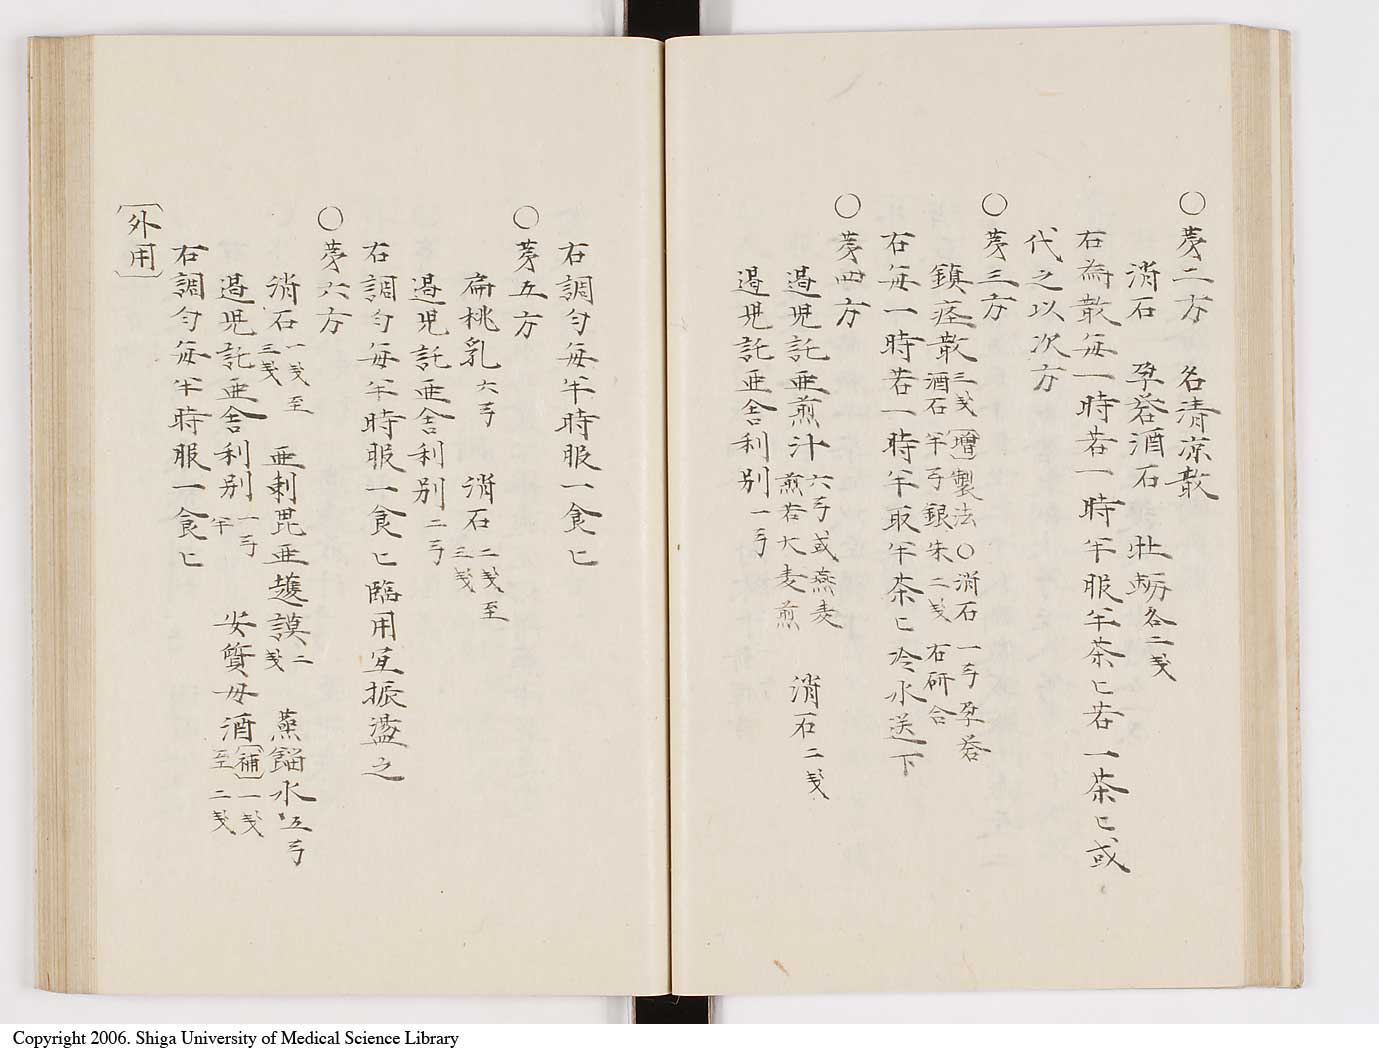 ○苐二方 名清凉散
消石 孕礬酒石 牡蛎各二戔
右為散毎一時若一時半服半茶匕若一茶匕或
代之以次方
○苐三方
鎮痙散三戔〔増〕製法○消石一弓孕礬
酒石半弓銀朱二戔右研合
右毎一時若一時半取半茶匕冷水送下
○苐四方
過児託亜煎汁六弓或燕麦煎若大麦煎 消石二戔
過児託亜舎利別一弓
右調匀毎半時服一食匕
○苐五方
扁桃乳六弓 消石二戔至三戔
過児託亜舎利別二弓
右調匀毎半時服一食匕臨用宜振盪之
○苐六方
消石一戔至三戔 亜剌毘亜護謨二戔 蒸餾水五弓
過児託亜舎利別一弓半 安質母酒〔補〕一戔至二戔
右調匀毎半時服一食匕
〔外用〕
Copyright 2006. Shiga University of Medical Science Library